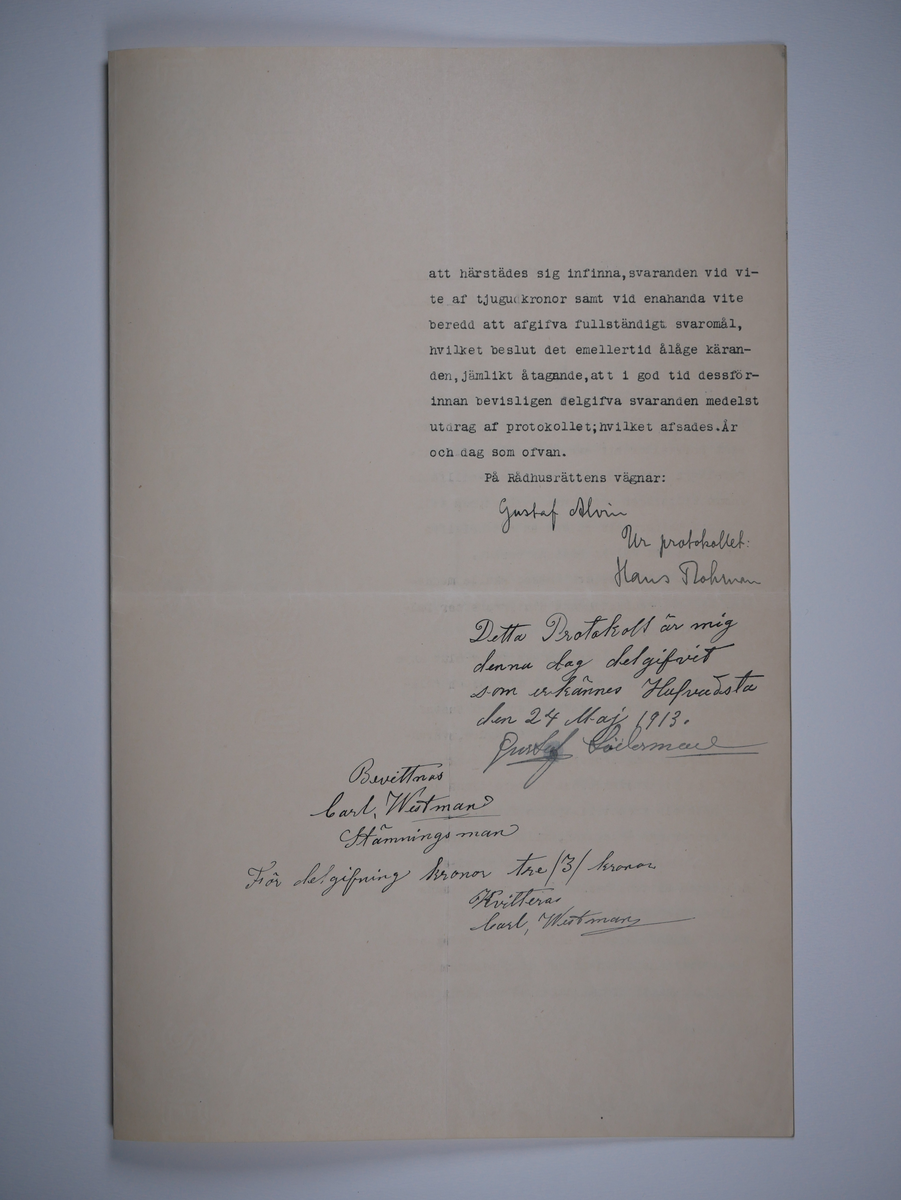 att härstädes sig infinna,svaranden vid vi-
te af tjugu kronor samt vid enahanda vite
beredd att afgifva fullständigt svaromål,
hvilket beslut det emellertid ålåge käran-
den,jämlikt åtagande,att i god tid dessför-
innan bevisligen delgifva svaranden medelst
utdrag af protokollet;hvilket afsades.År
och dag som ofvan.
På Rådhusrättens vägnar:
Gustaf Alvin
Ur protokollet:
Hans
Detta Protokoll är mig
denna dag delgifvit
som erkännes
den 24 Maj 1913.
Gustaf Söderman
Bevittnas
Carl, Westman
Stämningsman
För delgifning kronor tre/3/ kronor
Kvitteras
Carl, Westman